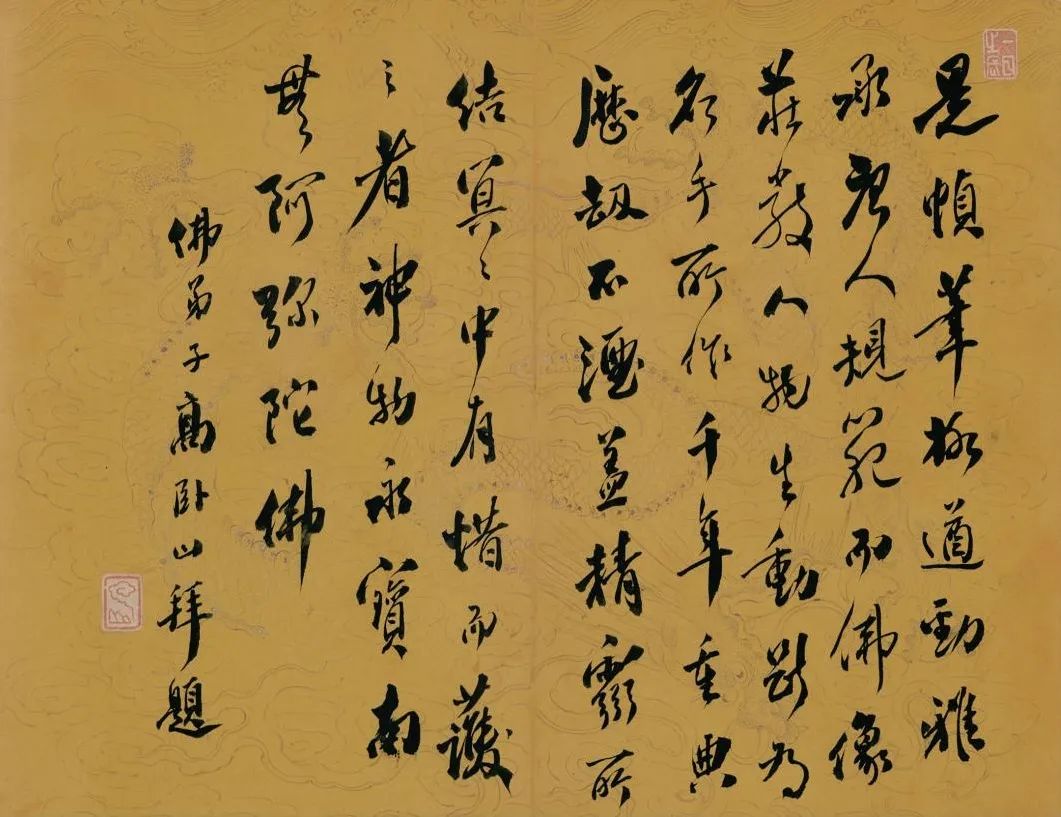 是幀筆極遒勁雅
承唐人規範而佛像
莊嚴人物生動斷為
名手所作千年重典
歷劫不湮蓋精靈所
結冥〻中有惜而護
之者神物永寶南
無阿彌陀佛
佛弟子高臥山拜題